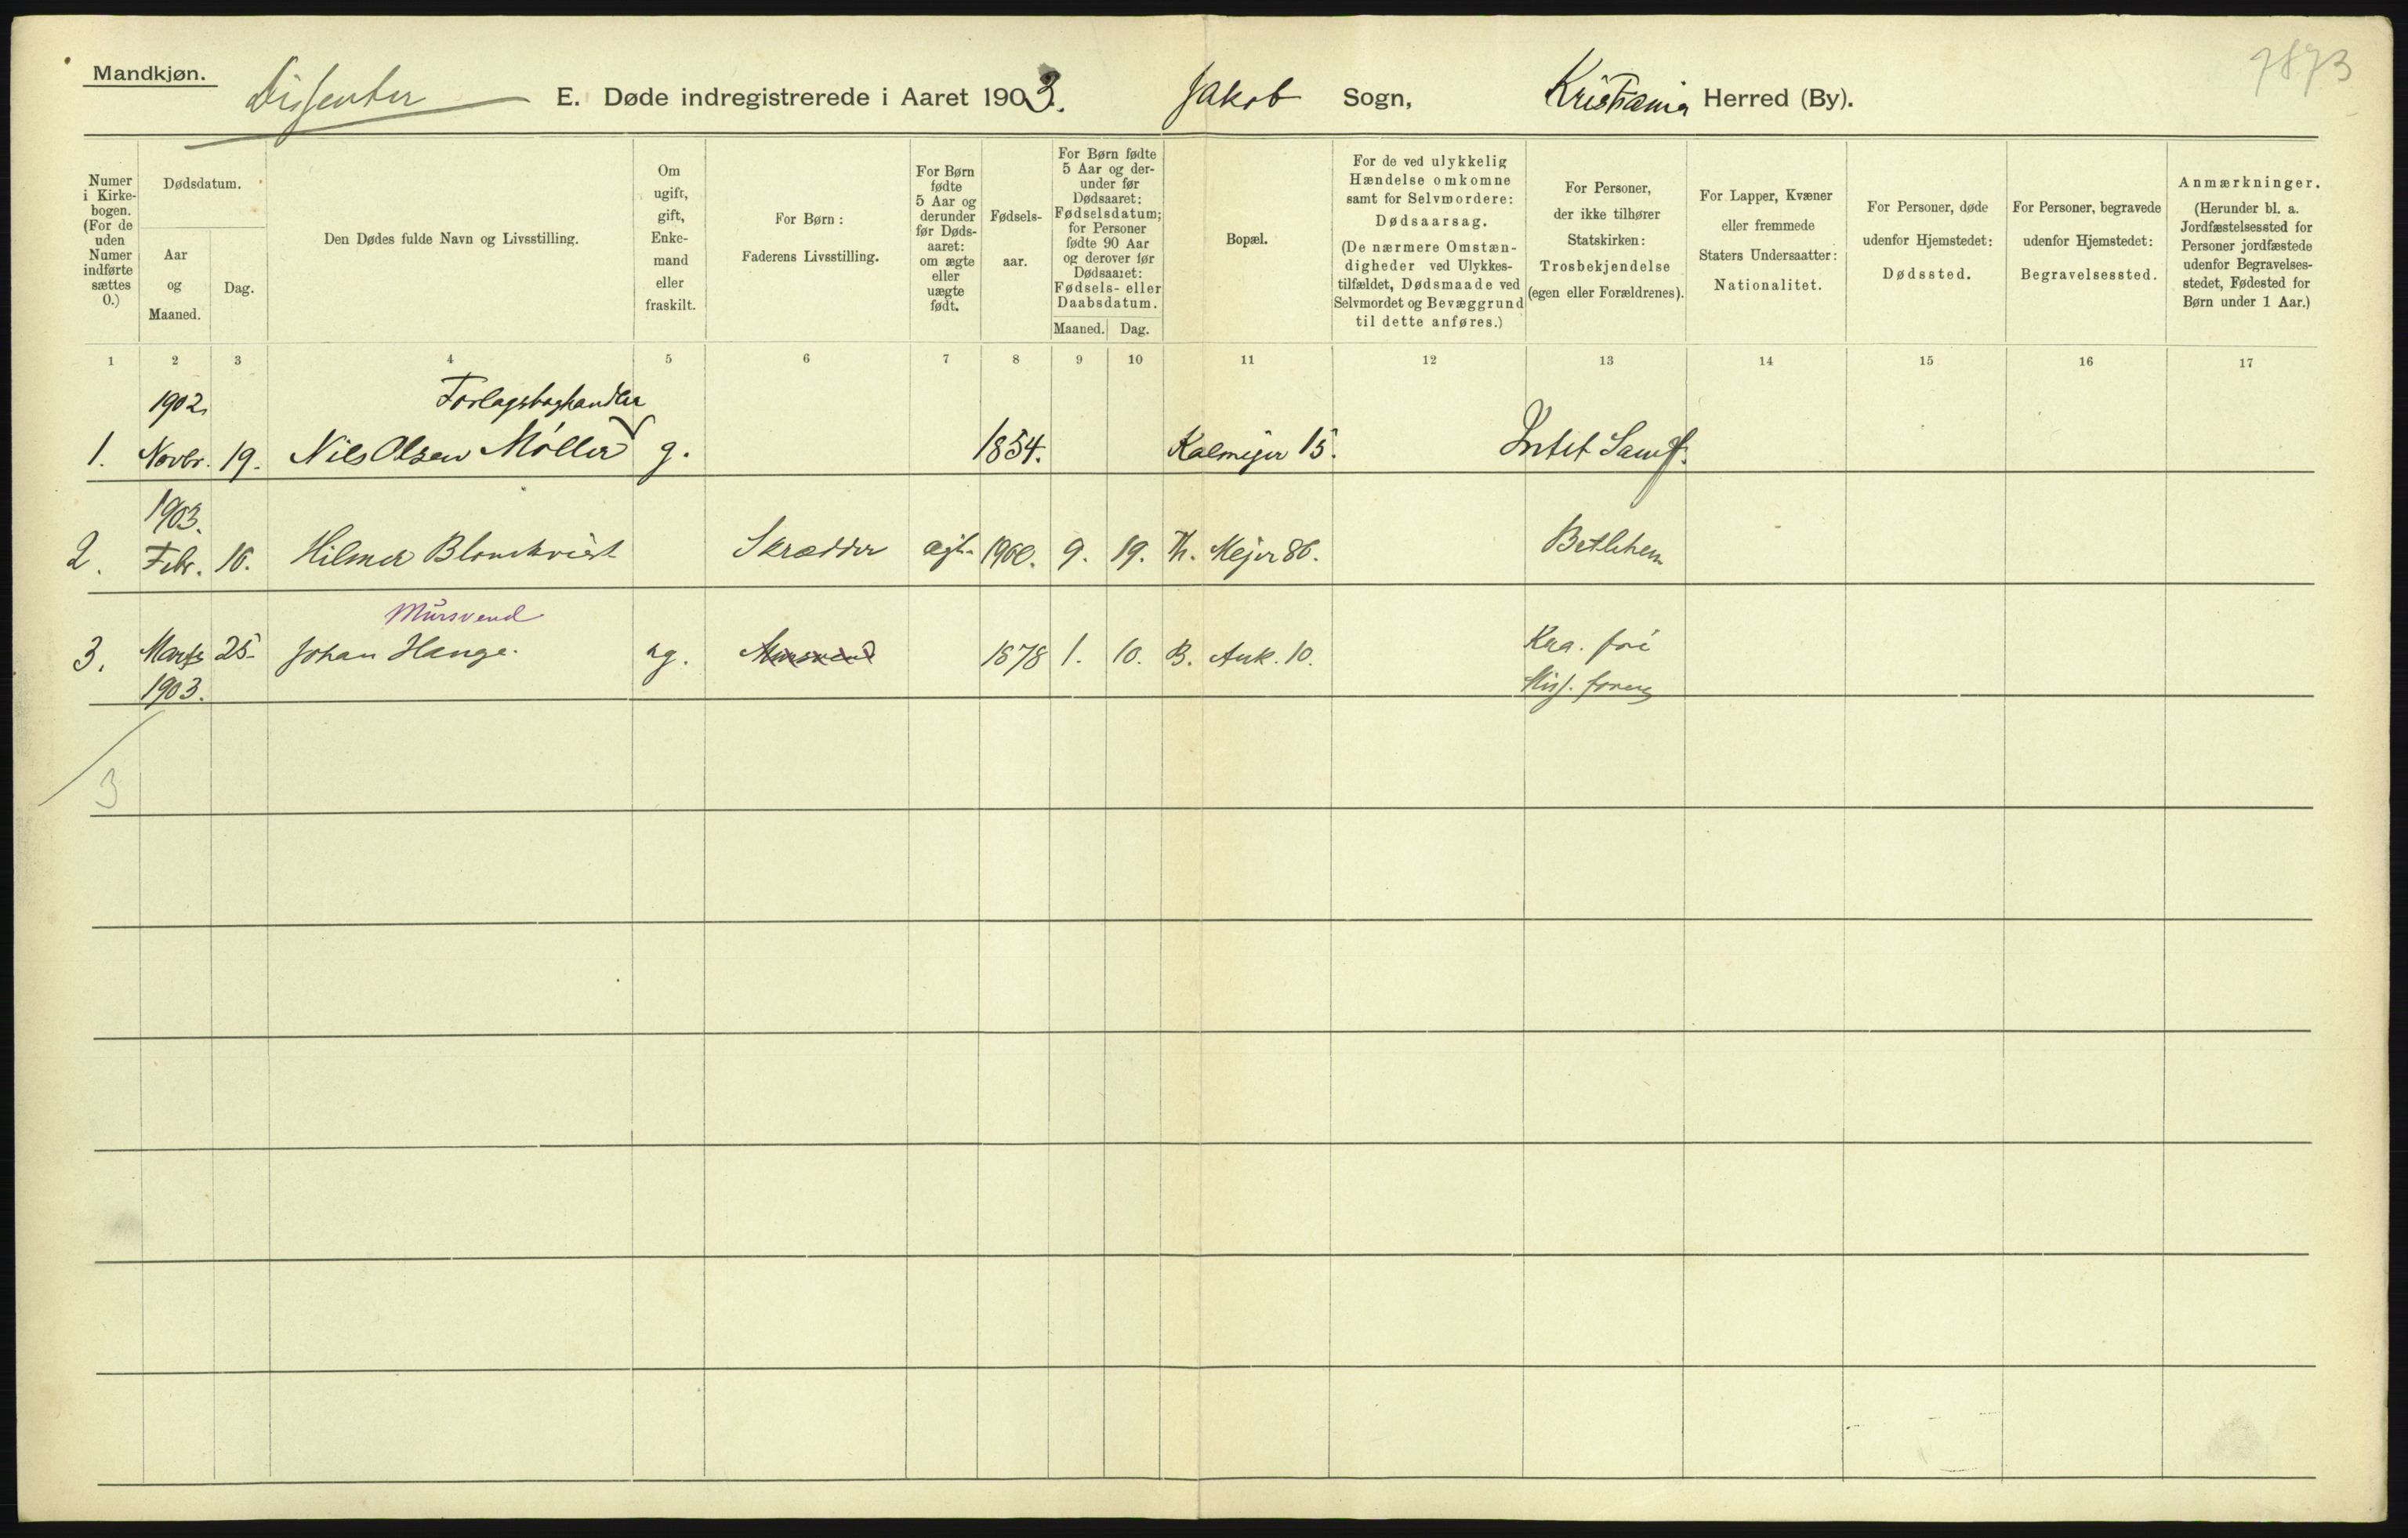 Mandkjøn.
Dissenter E. Døde indregistrerede i Aaret 1903. Jakob Sogn, Kristiania Herred (By).
7873
Numer i Kirkebogen. (For de uden Numer indførte sættes 0.)
Dødsdatum.
Aar og Maaned.
Dag.
Den Dødes fulde Navn og Livsstilling.
Om ugift, gift, Enkemand eller fraskilt.
For Børn: Faderens Livsstilling.
For Børn fødte 5 Aar og derunder før Dødsaaret: om ægte eller uægte født.
Fødselsaar.
For Børn fødte 5 Aar og derunder før Dødsaaret: Fødselsdatum; for Personer fødte 90 Aar og derover før Dødsaaret: Fødsels- eller Daabsdatum.
Maaned. Dag.
Bopæl.
For de ved ulykkelig Hændelse omkomne samt for Selvmordere: Dødsaarsag.
(De nærmere Omstændigheder ved Ulykkestilfældet, Dødsmaade ved Selvmordet og Bevæggrund til dette anføres.)
For Personer, der ikke tilhører Statskirken: Trosbekjendelse (egen eller Forældrenes).
For Lapper, Kvæner eller fremmede Staters Undersaatter: Nationalitet.
For Personer, døde udenfor Hjemstedet: Dødssted.
For Personer, begravede udenfor Hjemstedet: Begravelsessted.
Anmærkninger. (Herunder bl. a. Jordfæstelsessted for Personer jordfæstede udenfor Begravelsesstedet, Fødested for Børn under 1 Aar.)
1 2 3 4 5 6 7 8 9 10 11 12 13 14 15 16 17
1902 Forlagsboghandler
1. Novbr. 19. Nils Olsen Møller g. 1854. Kalmejer 15. Intet Samf.
1903.
2. Febr. 16. Hilmer Blomkvist Skrædder ægt. 1900. 9. 19. Th. Mejer 86. Betlehem
Mursvend
3. Marts 25. Johan Hange. ug. Mursvend 1878 1. 10. B. Ank. 10. Kra. fri
1903. Miss. foren
3